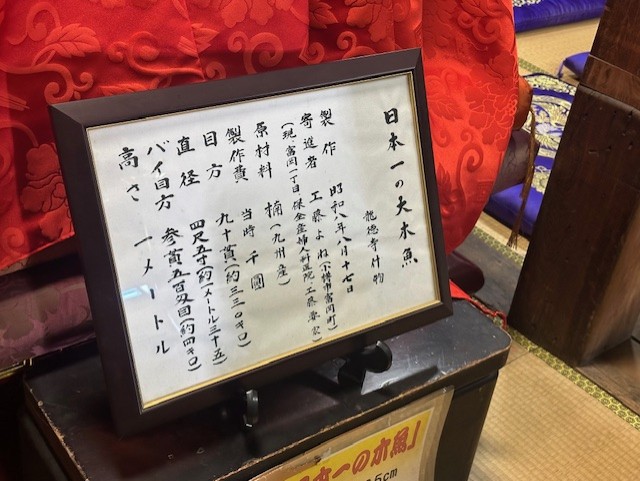 日本一の大木魚
龍徳寺什物
製作 昭和八年八月十七日
寄進者 工藤よね(小樽市富岡町)
(現 富岡一丁目 保全産婦人科医院・工藤
原材料 楠(九州産)
製作費 当時 千圓
目方 九十貫(約三三〇キロ)
直径 四尺五寸(約一メートル三十五)
バイ目方 参貫五百匁目(約四キロ)
高さ 一メートル
本一の木魚」
5cm